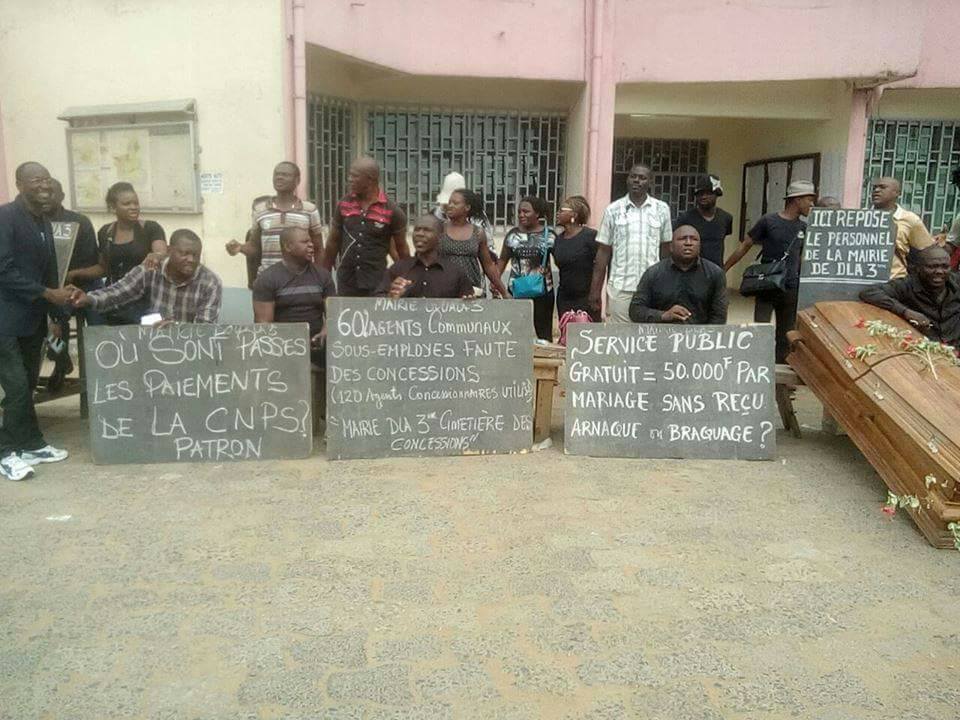 A 3
MAIRIE DOUALA 3
OÙ SONT PASSES
LES PAIEMENTS
DE LA CNPS?
PATRON
MAIRIE DOUALA 3
602 AGENTS COMMUNAUX
SOUS-EMPLOYES FAUTE
DES CONCESSIONS
(120 Agents Concessionnaires UTILISÉS)
"MAIRIE DLA 3ème CIMETIÈRE DES
CONCESSIONS"
SERVICE PUBLIC
GRATUIT = 50.000F PAR
MARIAGE SANS REÇU
ARNAQUE OU BRAQUAGE?
ICI REPOSE
LE PERSONNEL
DE LA MAIRIE
DE DLA 3ème